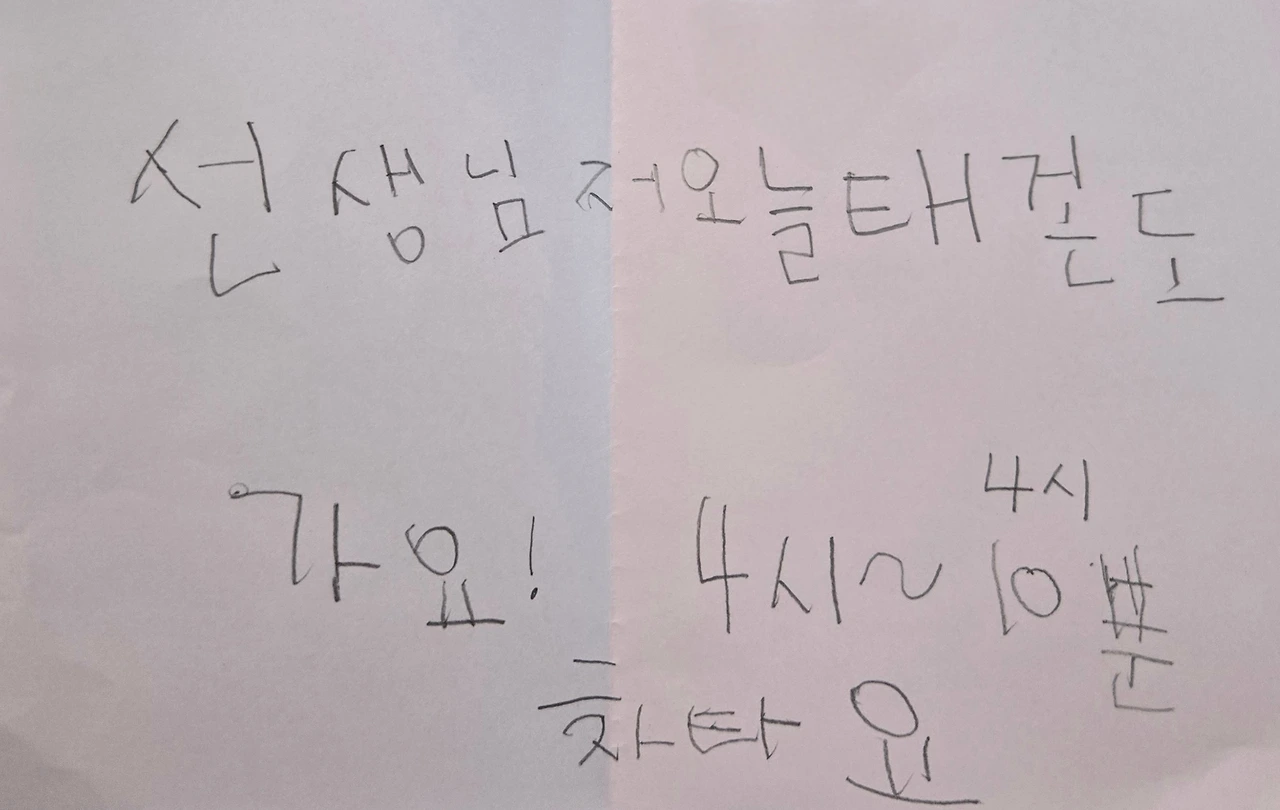 선생님 저 오늘 태귄도
가요! 4시~ 4시 10분
차타요